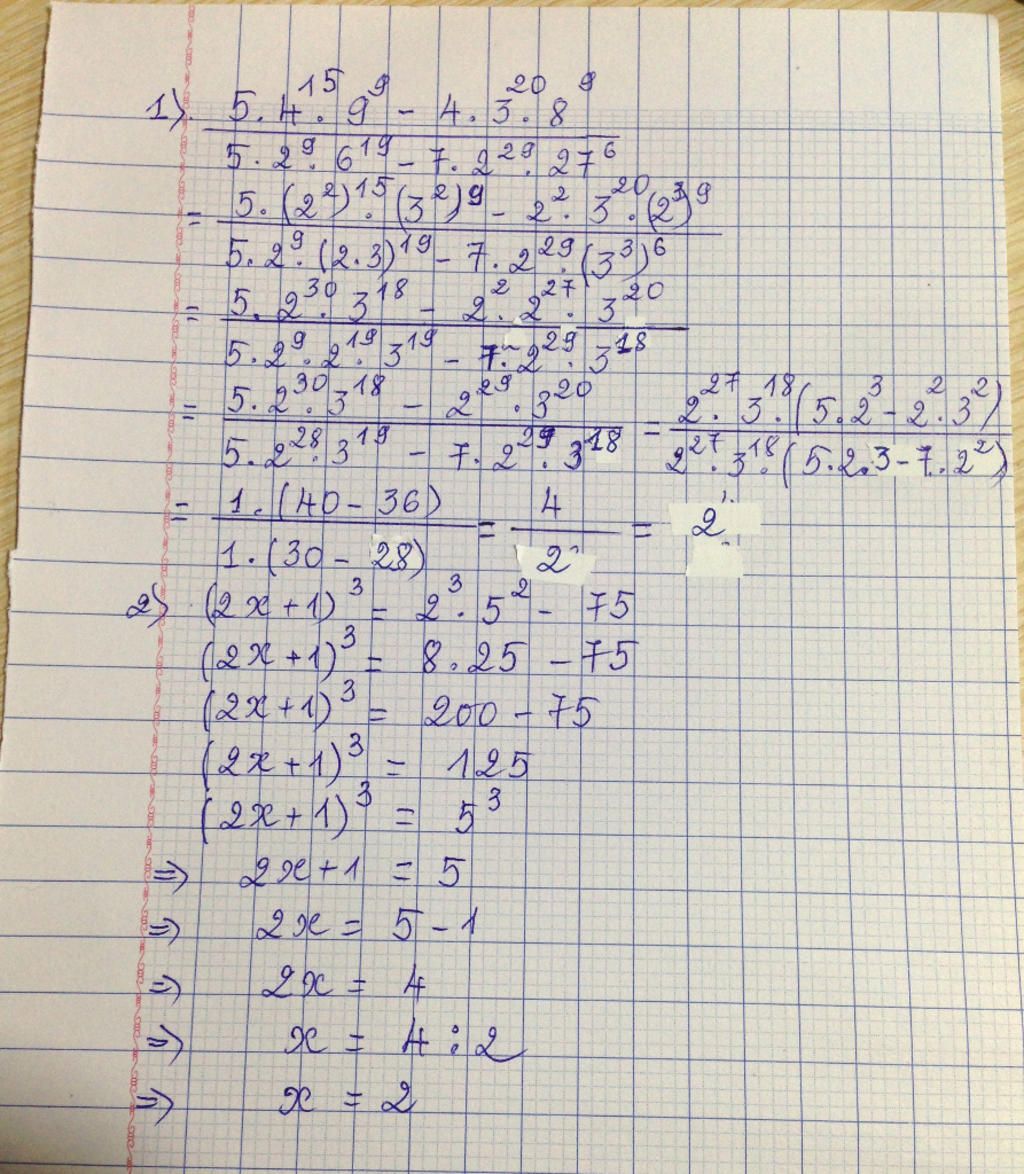 1). (5.4¹⁵.9⁹ - 4.3²⁰.8⁹)/(5.2⁹.6¹⁹ - 7.2²⁹.27⁶)
= (5.(2²)¹⁵.(3²)⁹ - 2².3²⁰.(2³)⁹)/(5.2⁹.(2.3)¹⁹ - 7.2²⁹.(3³)⁶)
= (5.2³⁰.3¹⁸ - 2².2²⁷.3²⁰)/(5.2⁹.2¹⁹.3¹⁹ - 7.2²⁹.3¹⁸)
= (5.2³⁰.3¹⁸ - 2²⁹.3²⁰)/(5.2²⁸.3¹⁹ - 7.2²⁹.3¹⁸) = (2²⁷.3¹⁸.(5.2³ - 2².3²))/(2²⁷.3¹⁸.(5.2.3 - 7.2²))
= (1.(40 - 36))/(1.(30 - 28)) = 4/2 = 2
2) (2x+1)³ = 2³.5² - 75
(2x+1)³ = 8.25 - 75
(2x+1)³ = 200 - 75
(2x+1)³ = 125
(2x+1)³ = 5³
⇒ 2x+1 = 5
⇒ 2x = 5 - 1
⇒ 2x = 4
⇒ x = 4 : 2
⇒ x = 2